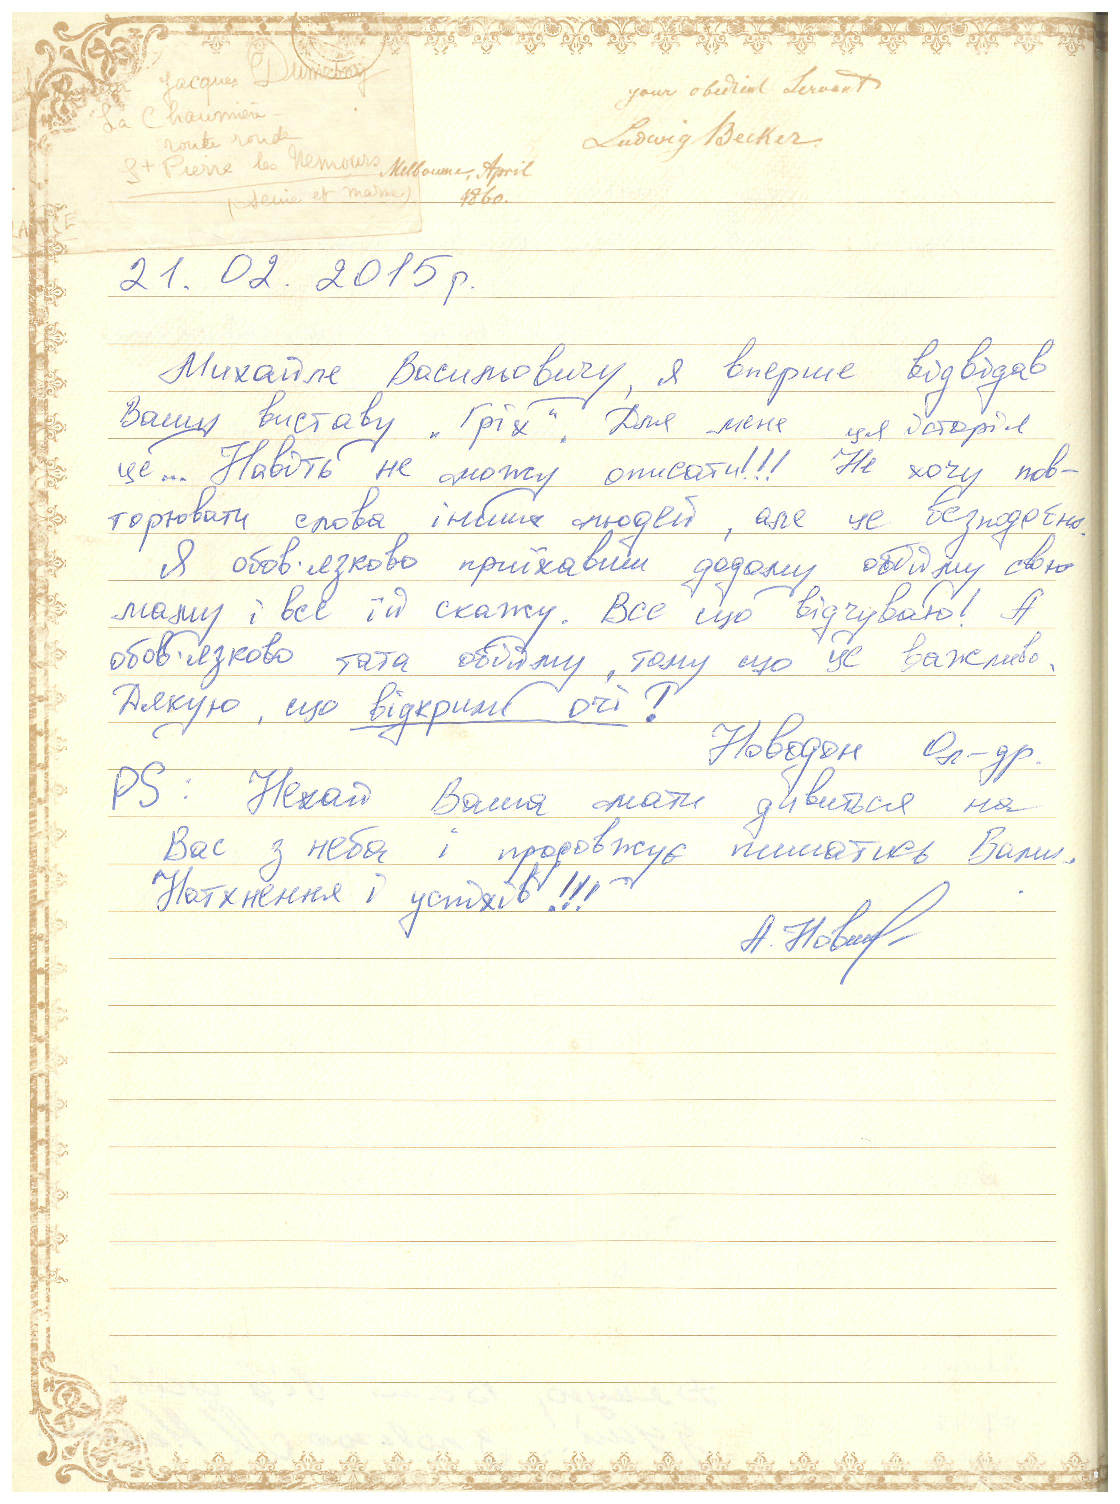 Jacques Dumesny
La Chaumière
route ronde
St Pierre les Nemours
(Seine et Marne)
your obedient Servant
Ludwig Becker
Melbourne, April
1860.
21. 02. 2015 р.
Михайле Васильовичу, я вперше відвідав
Вашу виставу „Гріх“. Для мене ця історія
це... Навіть не можу описати!!! Не хочу пов-
торювати слова інших людей, але це безподобно.
Я обов'язково приїхавши додому обійму свою
маму і все їй скажу. Все що відчуваю! А
обов'язково тата обійму, тому що це важливо.
Дякую, що відкрили очі!
Ол-др.
PS: Нехай Ваша мати дивиться на
Вас з неба і продовжує пишатись Вами.
Натхнення і успіхів!!!